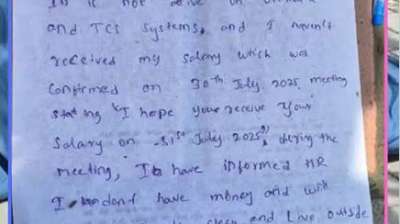 is not active on
and TCS systems, and I haven't
received my salary which was
confirmed on 30th July 2025 meeting
stating "I hope you receive your
Salary on 31st July 2025", during the
meeting, I have informed HR
I don't have money and will
sleep and live outside